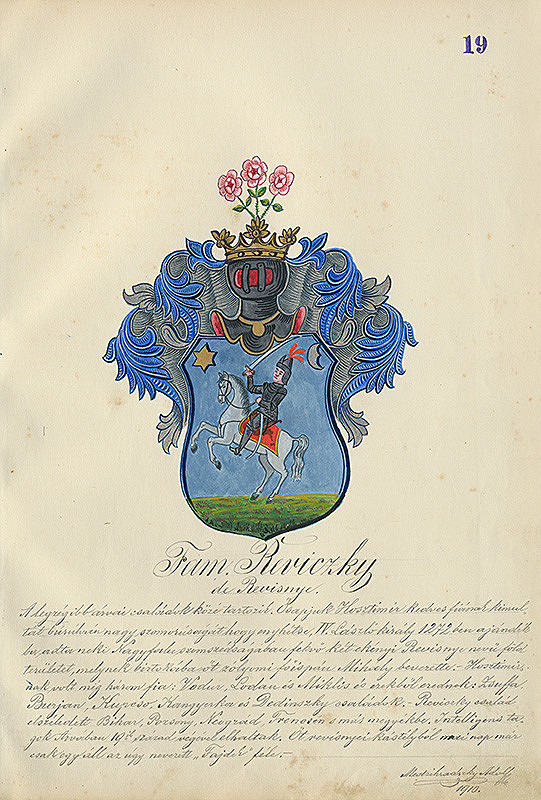 19
Fam. Reviczky
de Revisnye.
A legrégibb árvai családok közé tartozik. Ősapjuk Hosztimir kedves fiának kimul-
tát búsulván nagy szomoruságát hogy enyhitse, IV. László király 1272 ben ajándék
ba adta neki Nagyfalu szomszédságában fekvő két ekényi Revisnye nevü föld
területet, melynek birtokába őt zólyomi főispán Mihály bevezette. – Hosztimir-
nak volt még három fia: Vodur, Lodan és Miklós és ezekből erednek: Zsuffa,
Berjan, Kuzoso, Hangyorka és Dedinszky családok. – Reviczky család
elszéledett Bihar, Pozsony, Nograd, Trencsén s más megyékbe. Intelligens ta-
gok Árvában 19dik század végével elhaltak. Öt revisnyei kástélyból mai nap már
csak egy áll az úgy nevezett, Tajdel féle. –
Medzihradszky Adolf
1910.